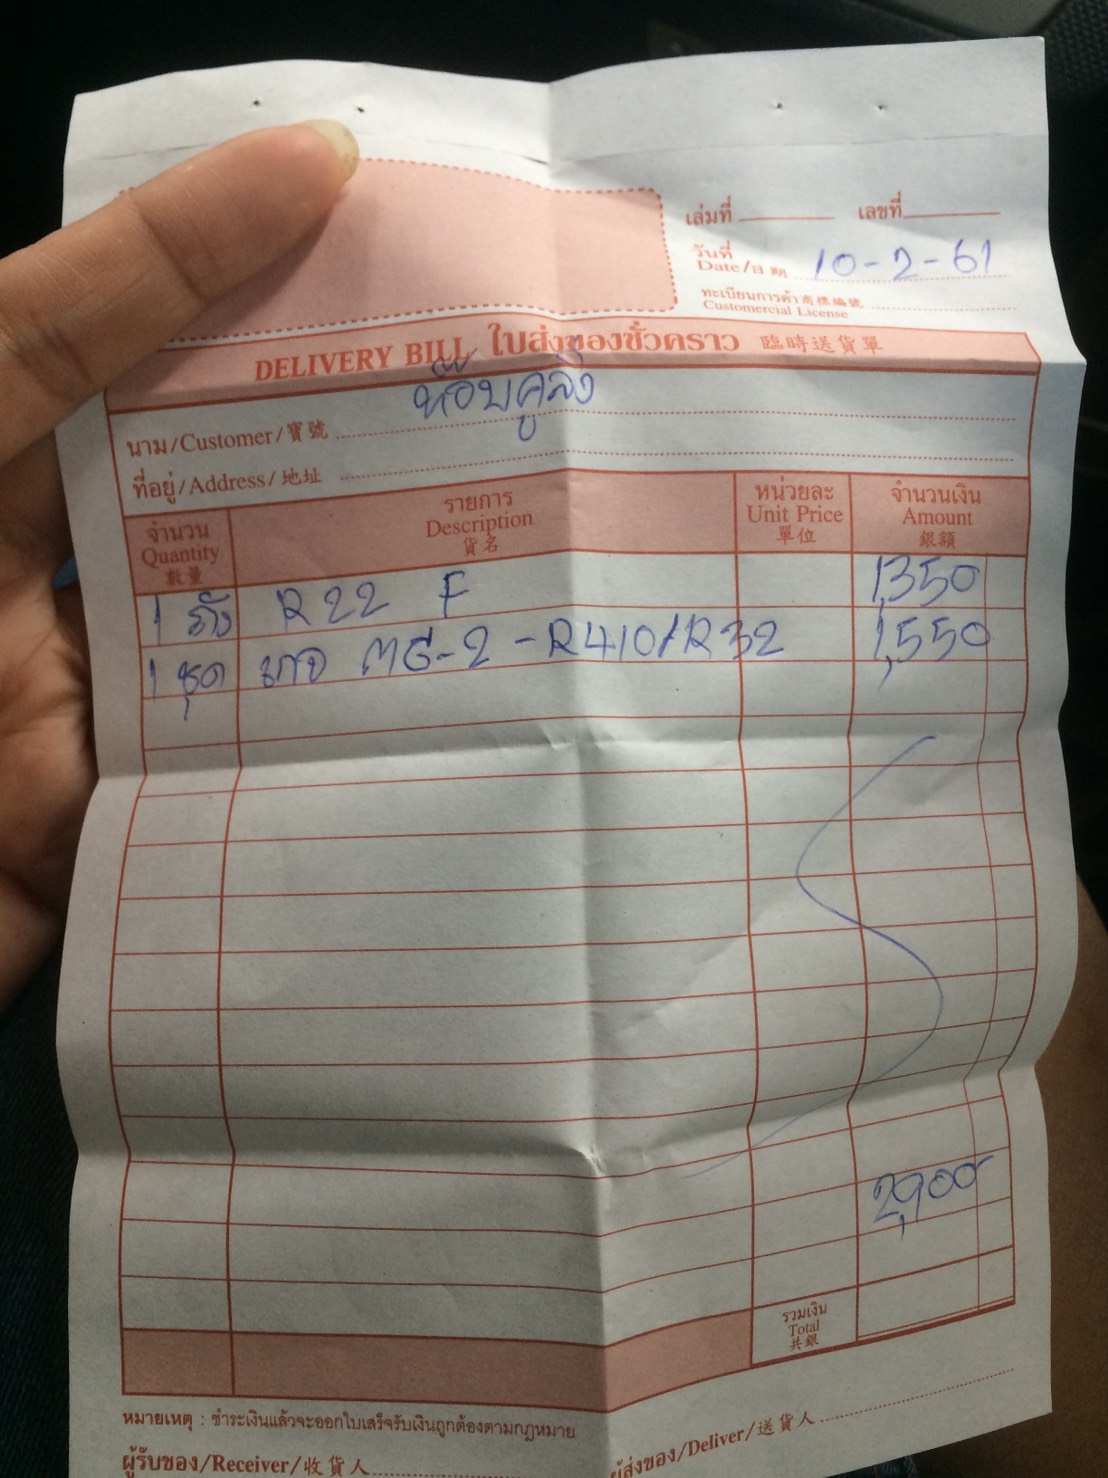 เล่มที่ เลขที่
วันที่
Date/日期 10-2-61
ทะเบียนการค้า 商標編號
Customercial License
DELIVERY BILL ใบส่งของชั่วคราว 臨時送貨單
นาม/Customer/寶號 ห้อบคูลิ่ง
ที่อยู่/Address/地址
จำนวน รายการ หน่วยละ จำนวนเงิน
Quantity Description Unit Price Amount
數量 貨名 單位 銀額
1 ถัง R22 F 1,350
1 ชุด เกจ MG-2 - R410/R32 1,550
2,900
รวมเงิน
Total
共銀
หมายเหตุ : ชำระเงินแล้วจะออกใบเสร็จรับเงินถูกต้องตามกฎหมาย
ผู้รับของ/Receiver/收貨人 ผู้ส่งของ/Deliver/送貨人